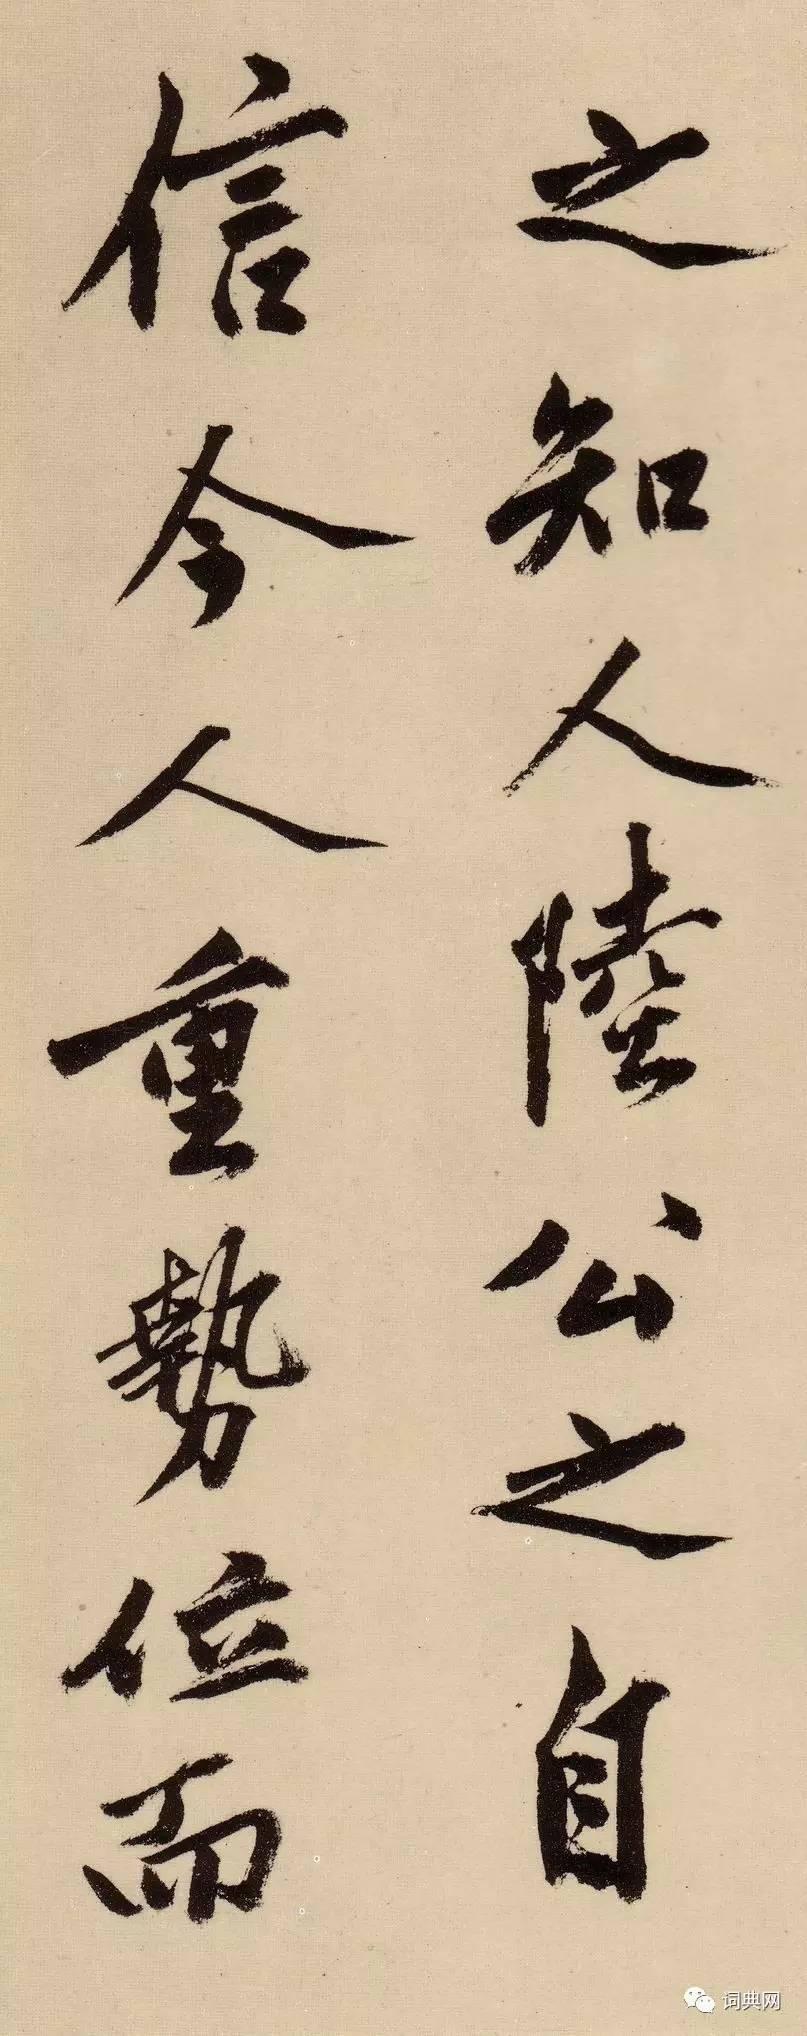 之知人陸公之自
信今人重勢位而
词典网